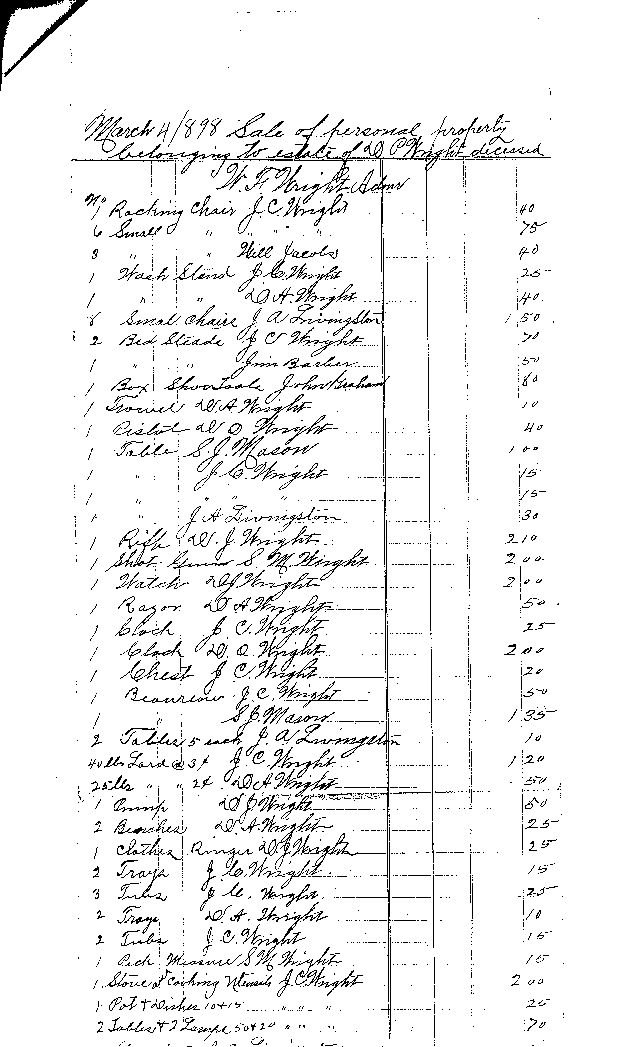 March 4/898 Sale of personal property
belonging to estate of D P Wright deceased
W. F. Wright Admr
No
1 Rocking Chair J. C. Wright 40
6 Small " " " " 75
3 " " Will Jacobs 40
1 Wash Stand J. C. Wright 25
1 " " D. A. Wright 40
8 Small Chairs J A Livingston 1 50
2 Bed Steads J C Wright 70
1 " " Jim Barber 50
1 Box Shoo Tools John 60
1 Trowel D A Wright 10
1 Pistol D O Wright 40
1 Table S. J. Mason 1 00
1 " J. C. Wright 15
1 " " " " 15
1 " J A Livingston 30
1 Rifle D. J. Wright 2 10
1 Shot Gunn S M Wright 2 00
1 Watch D J Wright 2 00
1 Razor D A Wright 50
1 Clock J. C. Wright 25
1 Clock D. O. Wright 2 00
1 Chest J C. Wright 20
1 Beaureau J. C. Wright 50
1 " S J. Mason 1 35
2 Tables 5 each J. A Livingston 10
40 lbs Lard @ 3¢ J. C. Wright 1 20
25 lbs " " 2¢ D A Wright 50
1 Pump D J Wright 50
2 Benches D. A. Wright 25
1 Clothes Ringer D J Wright 25
2 Trays J C. Wright 15
3 Tubs J C. Wright 25
2 Trays D. A. Wright 10
2 Tubs J C. Wright 15
1 Peck Measure S M Wright 15
1 Stove & Cooking Utensils J. C Wright 2 00
1 Pot & Dishes 10+15 " " " 25
2 Tables & 2 Lamps 50+20 " " " 70